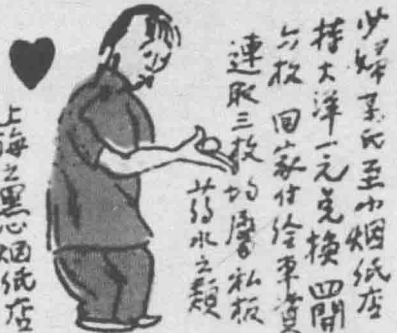 少婦某氏至小烟紙店
持大洋一元兑換四開
六枚回家付給車資
連取三枚均屬私板
药水之類
上海之黑心烟紙店